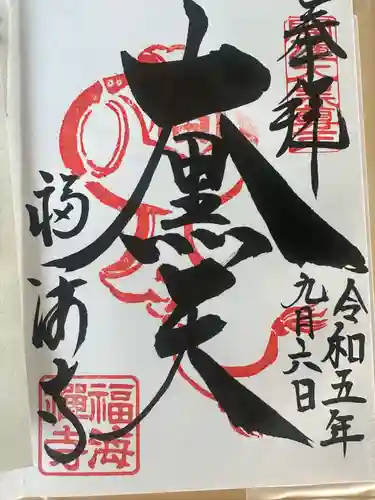 奉拝
令和五年
九月六日
大黒天
福海寺
福海
禅寺